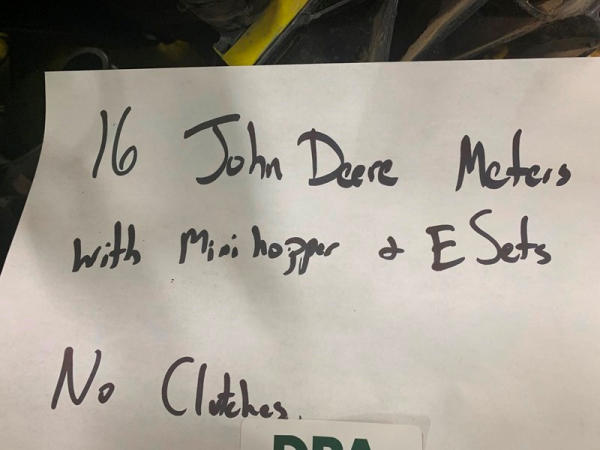 16 John Deere Meters
with Minihopper & E Sets
No Clutches.